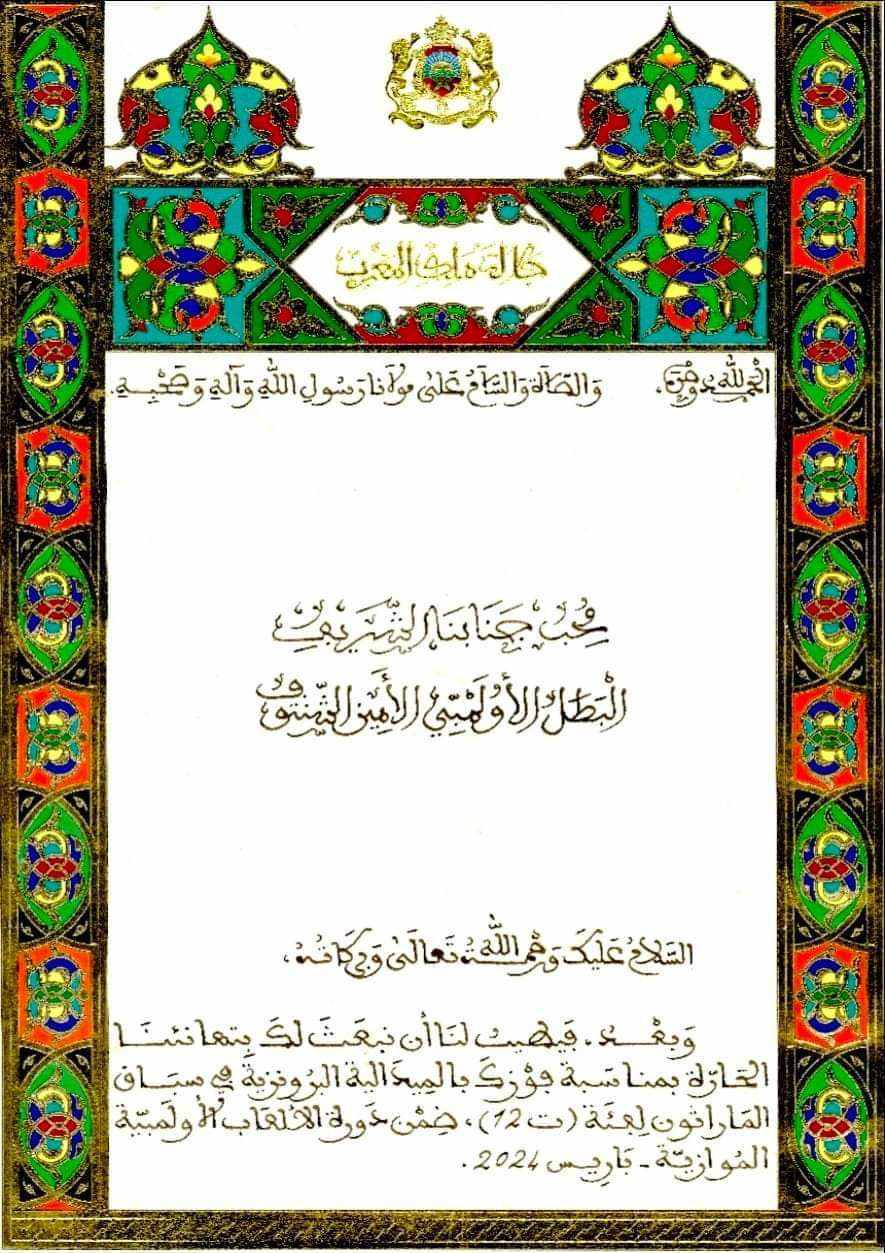 جلالة ملك المغرب
الحمد لله وحده، والصلاة والسلام على مولانا رسول الله وآله وصحبه.
محب جنابنا الشريف
الْبَطَلُ الأُولَمْبِّي الأَمِين الشَّنتُوف
السَّلامُ عَلَيكَ وَرحمـة اللَّه تَعَالَى وَبركَاتُه،
وَبعْـــد، فيطيب لنَا أن نبعَثَ لكَ بِتهانئنــا
الحَارّة بمناسَبة فوْزكَ بالمِيدَالية البرُونزية في سبَاق
المَاراثون لِفئَة (ت 12)، ضِمْن دَورة الألعَاب الأُولَمبيّة
المُوَازيّة - بَاريس 2024.